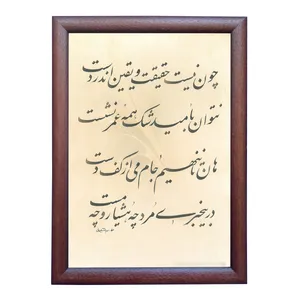 چون نیست حقیقت و یقین اندر دست
نتوان بامید شک همه عمر نشست
هان تا ننهیم جام می از کف دست
در بیخبری مرد چه هشیار و چه مست